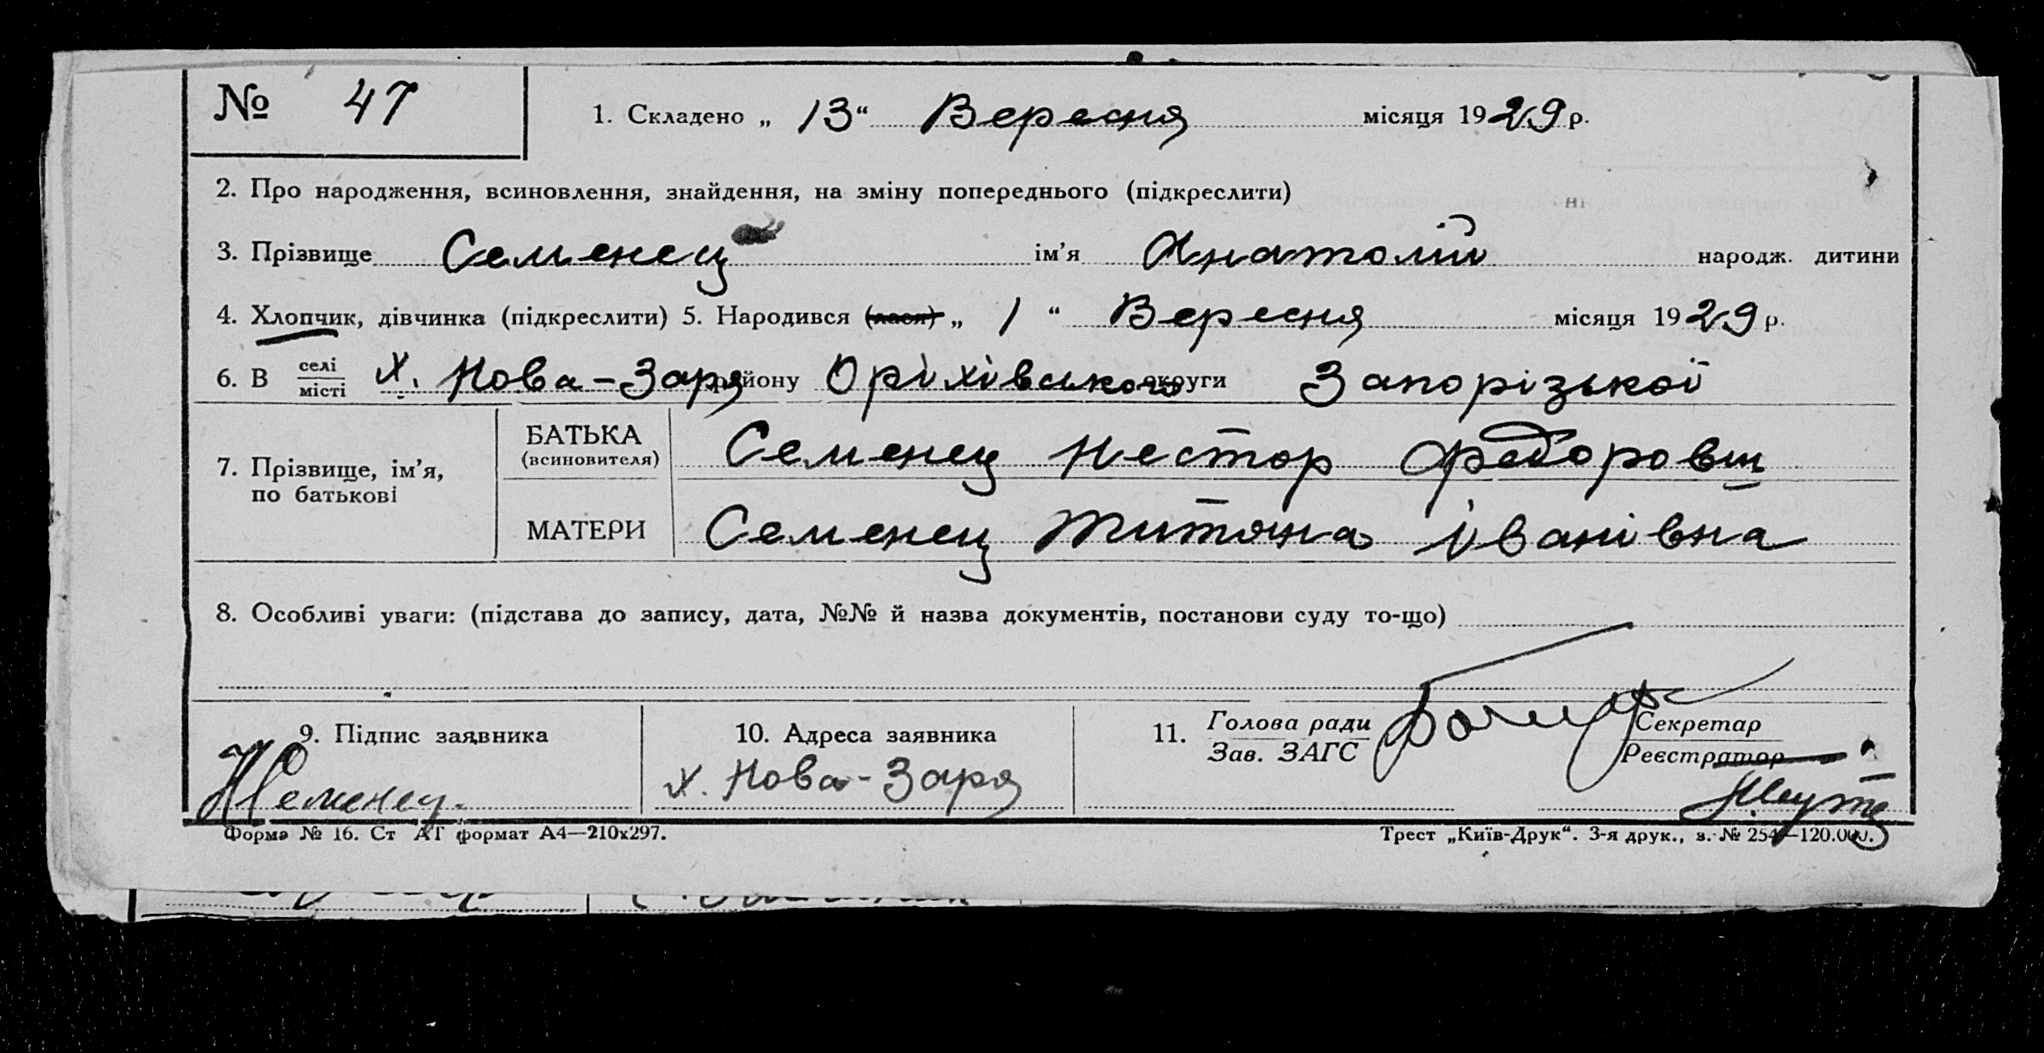 № 47 1. Складено „ 13 “ Вересня місяця 1929 р.
2. Про народження, всиновлення, знайдення, на зміну попереднього (підкреслити)
3. Прізвище Семенец ім’я Анатолій народж. дитини
4. Хлопчик, дівчинка (підкреслити) 5. Народився (лася) „ 1 “ Вересня місяця 1929 р.
6. В селі місті х. Нова-Заря району Оріхівського округи Запорізької
7. Прізвище, ім’я, по батькові
БАТЬКА (всиновителя) Семенец Нестор Федорович
МАТЕРИ Семенец Титяна Іванівна
8. Особливі уваги: (підстава до запису, дата, №№ й назва документів, постанови суду то-що)
9. Підпис заявника 10. Адреса заявника 11. Голова ради Секретар
Зав. ЗАГС Реєстратор
НСеменец. х. Нова-Заря
Форма № 16. Ст АТ формат А4—210х297. Трест „Київ-Друк“. 3-я друк., з. № 254—120.000.